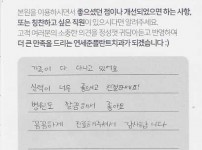 본원을 이용하시면서 좋으셨던 점이나 개선되었으면 하는 사항,
또는 칭찬하고 싶은 직원이 있으시다면 알려주세요.
고객 여러분의 소중한 의견을 정성껏 귀담아듣고 반영하여
더 큰 만족을 드리는 연세준플란트치과가 되겠습니다 :)
기운이 다 나고 있어요
실력이 너무 좋으시고 친절하세요!
병원도 깔끔해서 좋아요
꼼꼼하게 진료해주셔서 감사합니다